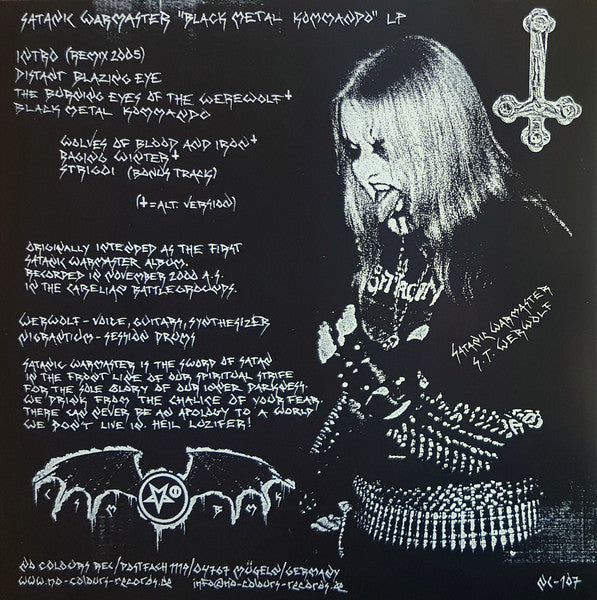 SATANIC WARMASTER "BLACK METAL KOMMANDO" LP
INTRO (REMIX 2005)
DISTANT BLAZING EYE
THE BURNING EYES OF THE WEREWOLF†
BLACK METAL KOMMANDO
WOLVES OF BLOOD AND IRON†
RAGING WINTER†
STRIGOI (BONUS TRACK)
(†=ALT. VERSION)
ORIGINALLY INTENDED AS THE FIRST
SATANIC WARMASTER ALBUM.
RECORDED IN NOVEMBER 2000 A.S.
IN THE CARELIAN BATTLEGROUNDS.
WERWOLF - VOICE, GUITARS, SYNTHESIZER
NIGRANTIUM - SESSION DRUMS
SATANIC WARMASTER IS THE SWORD OF SATAN
IN THE FRONT LINE OF OUR SPIRITUAL STRIFE
FOR THE SOLE GLORY OF OUR INNER DARKNESS.
WE DRINK FROM THE CHALICE OF YOUR FEAR.
THERE CAN NEVER BE AN APOLOGY TO A WORLD
WE DON'T LIVE IN. HEIL LUZIFER!
SATANIC WARMASTER
S.T. WERWOLF
NO COLOURS REC/POSTFACH 1119/04767 MÜGELN/GERMANY
WWW.NO-COLOURS-RECORDS.DE INFO@NO-COLOURS-RECORDS.DE
NC-107